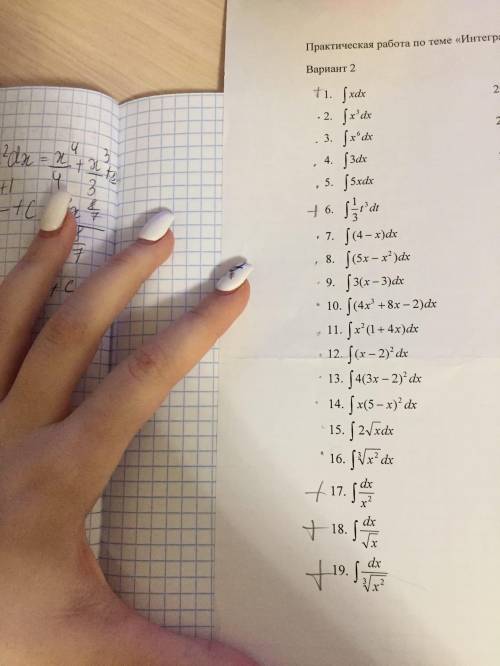 Практическая работа по теме «Интегра
Вариант 2
+ 1. ∫xdx
2. ∫x³dx
3. ∫x⁶dx
4. ∫3dx
5. ∫5xdx
+ 6. ∫1/3 t³dt
7. ∫(4 − x)dx
8. ∫(5x − x²)dx
9. ∫3(x − 3)dx
10. ∫(4x³ + 8x − 2)dx
11. ∫x²(1 + 4x)dx
12. ∫(x − 2)²dx
13. ∫4(3x − 2)²dx
14. ∫x(5 − x)²dx
15. ∫2√xdx
16. ∫∛x² dx
+ 17. ∫dx/x²
+ 18. ∫dx/√x
+ 19. ∫dx/∛x²
²dx = x⁴/4 + x³/3 +c
+1
+c
+c